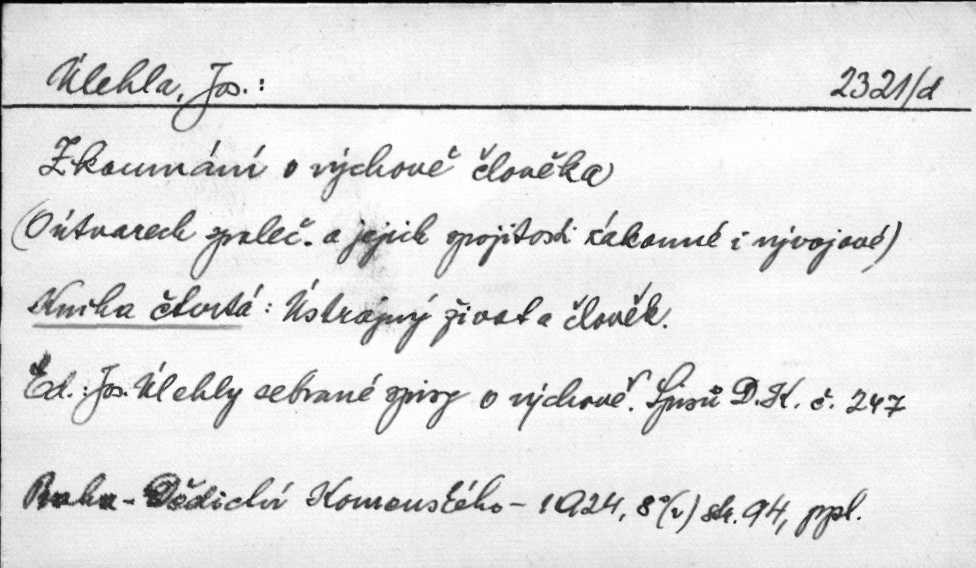 Úlehla, Jos.: 2321/d
Zkoumání o výchově člověka
(O útvarech společ. a jejich spojitosti zákonné i vývojové)
Kniha čtvrtá: Ústrojný život a člověk.
Ed.: Jos. Úlehly sebrané spisy o výchově. Spisů D. K. č. 247
Praha - Dědictví Komenského - 1924, 8°(v) str. 94, ppl.